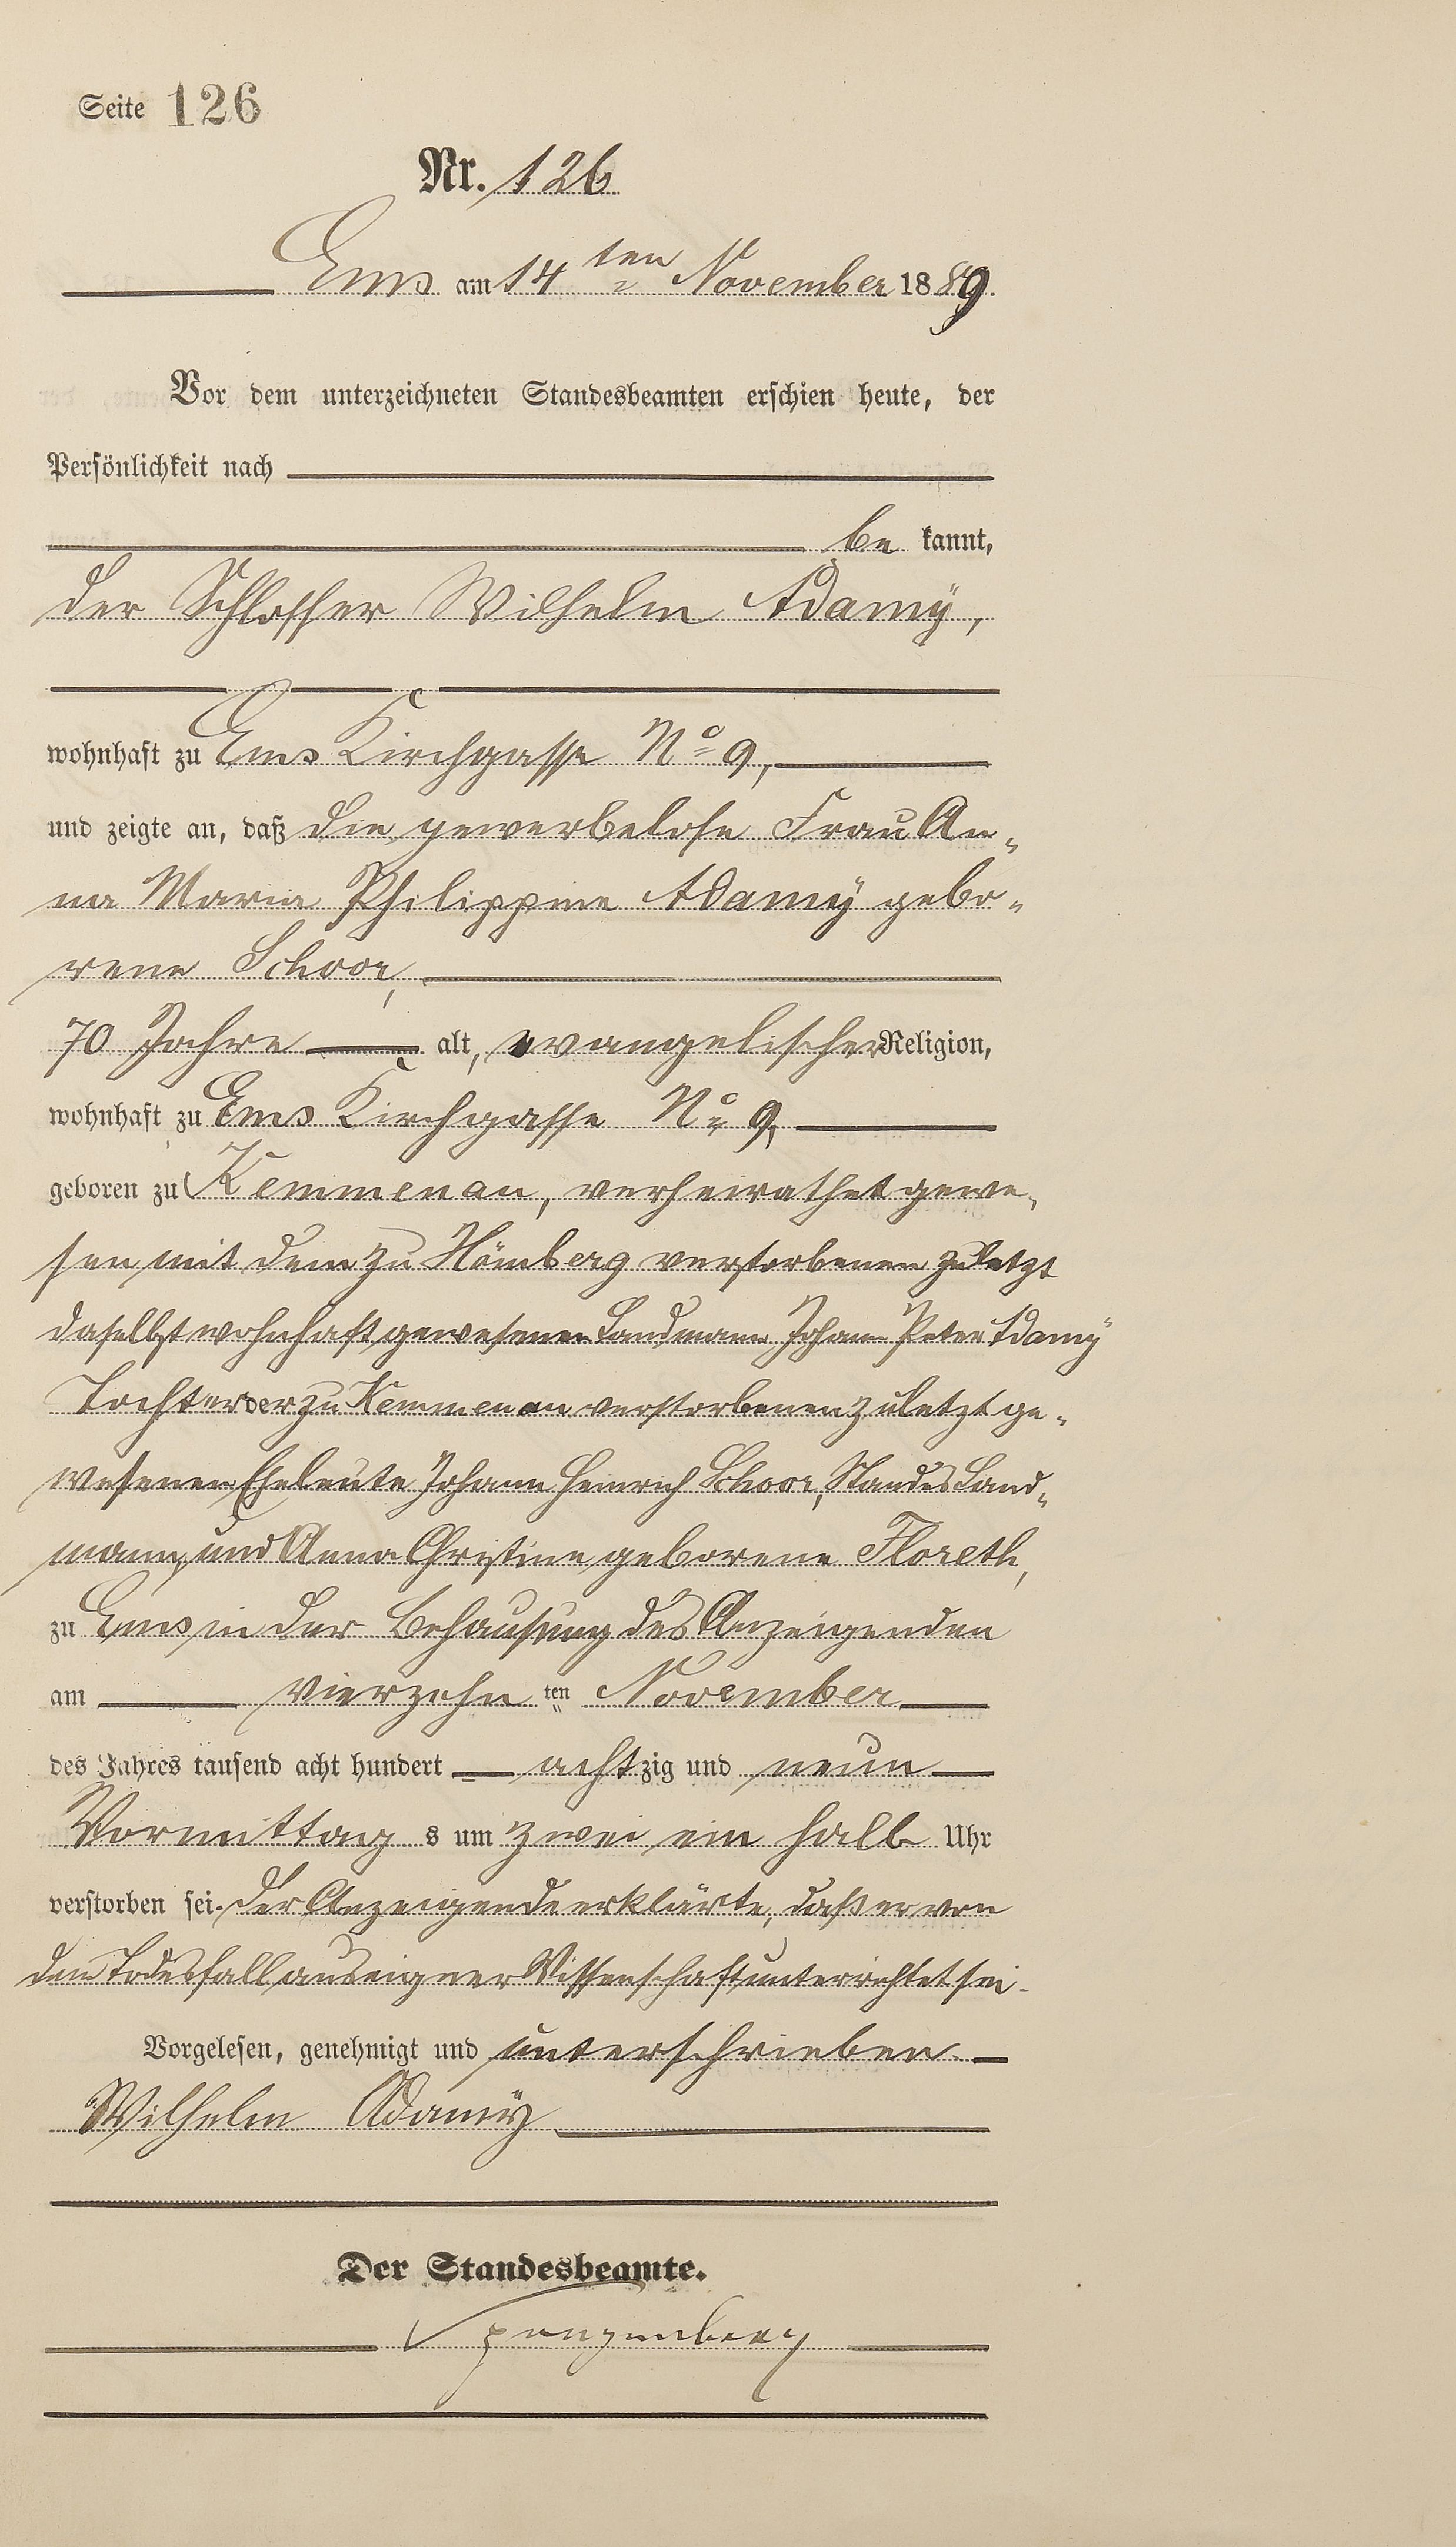 Seite 126
Nr. 126
Ems am 14ten November 1889
Vor dem unterzeichneten Standesbeamten erschien heute, der
Persönlichkeit nach
be kannt,
der Schlosser Wilhelm Adamÿ,
wohnhaft zu Ems Kirchgasse No 9,
und zeigte an, daß die gewerbelose Frau An„
na Maria Philippine Adamÿ gebo„
rene Schoor,
70 Jahre alt, evangelischer Religion,
wohnhaft zu Ems Kirchgasse No 9,
geboren zu Kemmenau, verheirathet gewe„
sen mit dem zu Hömberg verstorbenen zuletzt
daselbst wohnhaft gewesenen Landmann Johann Peter Adamÿ
Tochter der zu Kemmenau verstorbenen zuletzt ge„
wesenen Eheleute Johann Heinrich Schoor, Standes Land„
mann, und Anna Christine geborene Floreth,
zu Ems in der Behausung des Anzeigenden
am vierzehn ten November
des Jahres tausend acht hundert achtzig und neun
Vormittag s um zwei ein halb Uhr
verstorben sei. Der Anzeigende erklärte, daß er von
dem Todesfall aus eigner Wissenschaft unterrichtet sei.
Vorgelesen, genehmigt und unterschrieben
Wilhelm Adamÿ
Der Standesbeamte.
Spangenberg